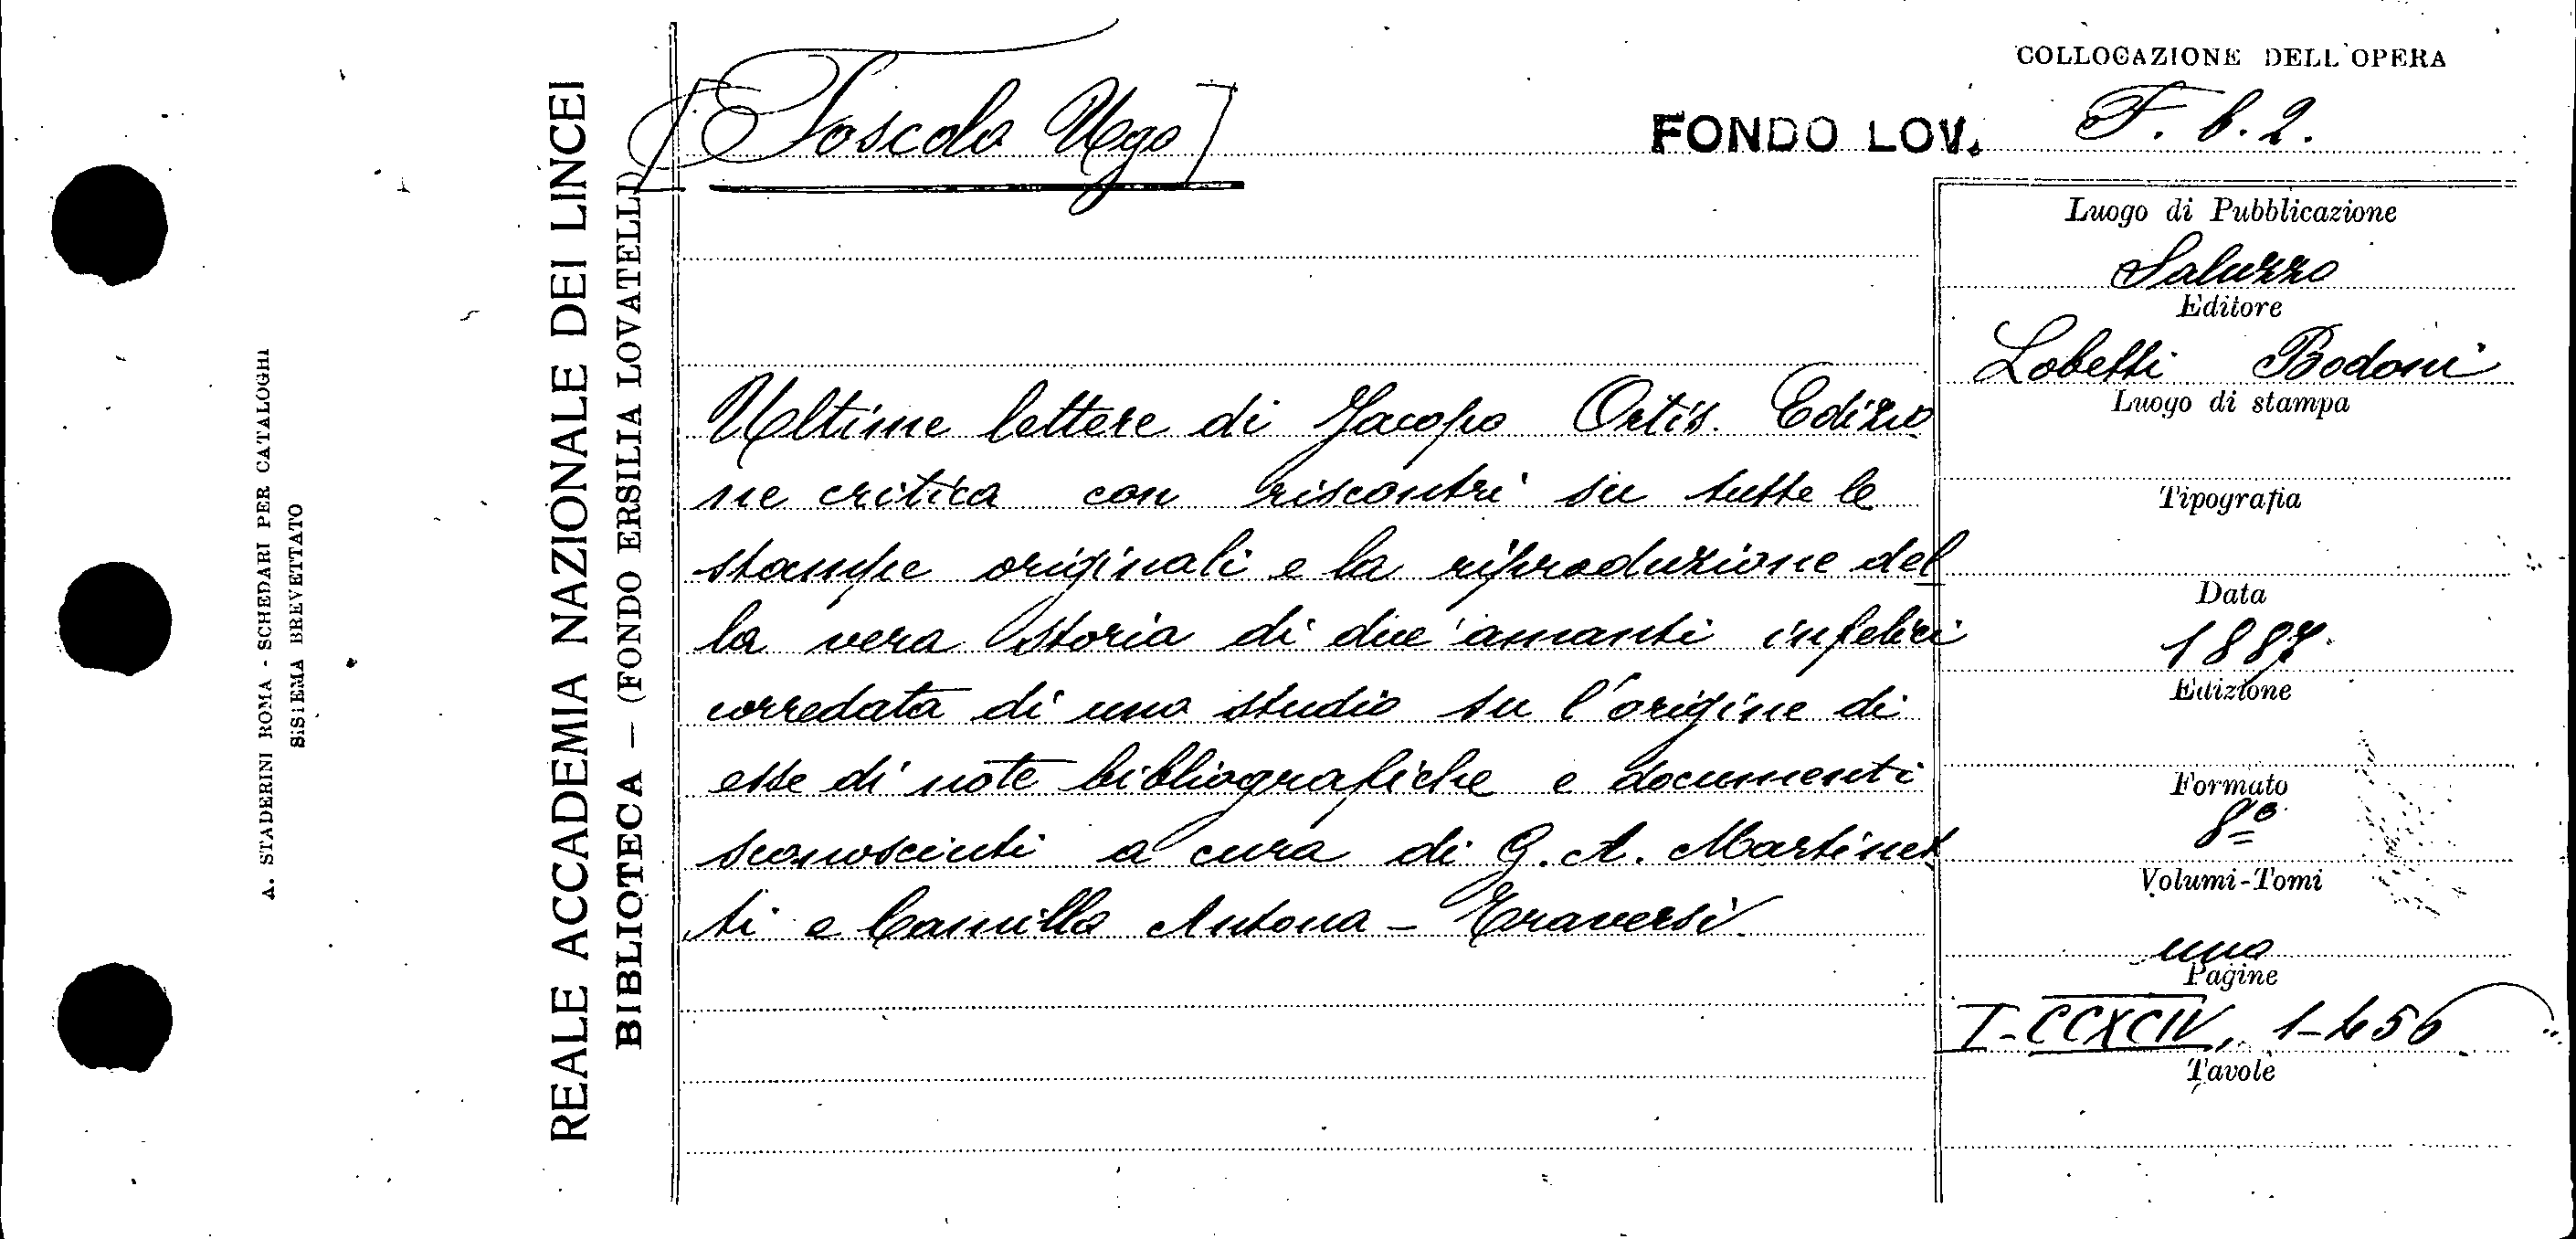 A. STADERINI ROMA - SCHEDARI PER CATALOGHI
SISTEMA BREVETTATO
REALE ACCADEMIA NAZIONALE DEI LINCEI
BIBLIOTECA — (FONDO ERSILIA LOVATELLI)
[Foscolo Ugo]
COLLOCAZIONE DELL'OPERA
FONDO LOV. F. b. 2.
Ultime lettere di Jacopo Ortis. Edizio
ne critica con riscontri su tutte le
stampe originali e la riproduzione del
la vera storia di due amanti infelici
corredata di uno studio su l'origine di
esse di note bibliografiche e documenti
sconosciuti a cura di G. A. Martinet
ti e Camillo Antona - Traversi.
Luogo di Pubblicazione
Saluzzo
Editore
Lobetti Bodoni
Luogo di stampa
Tipografia
Data
1887
Edizione
Formato
8º
Volumi-Tomi
uno
Pagine
I-CCXCIV, 1-456
Tavole